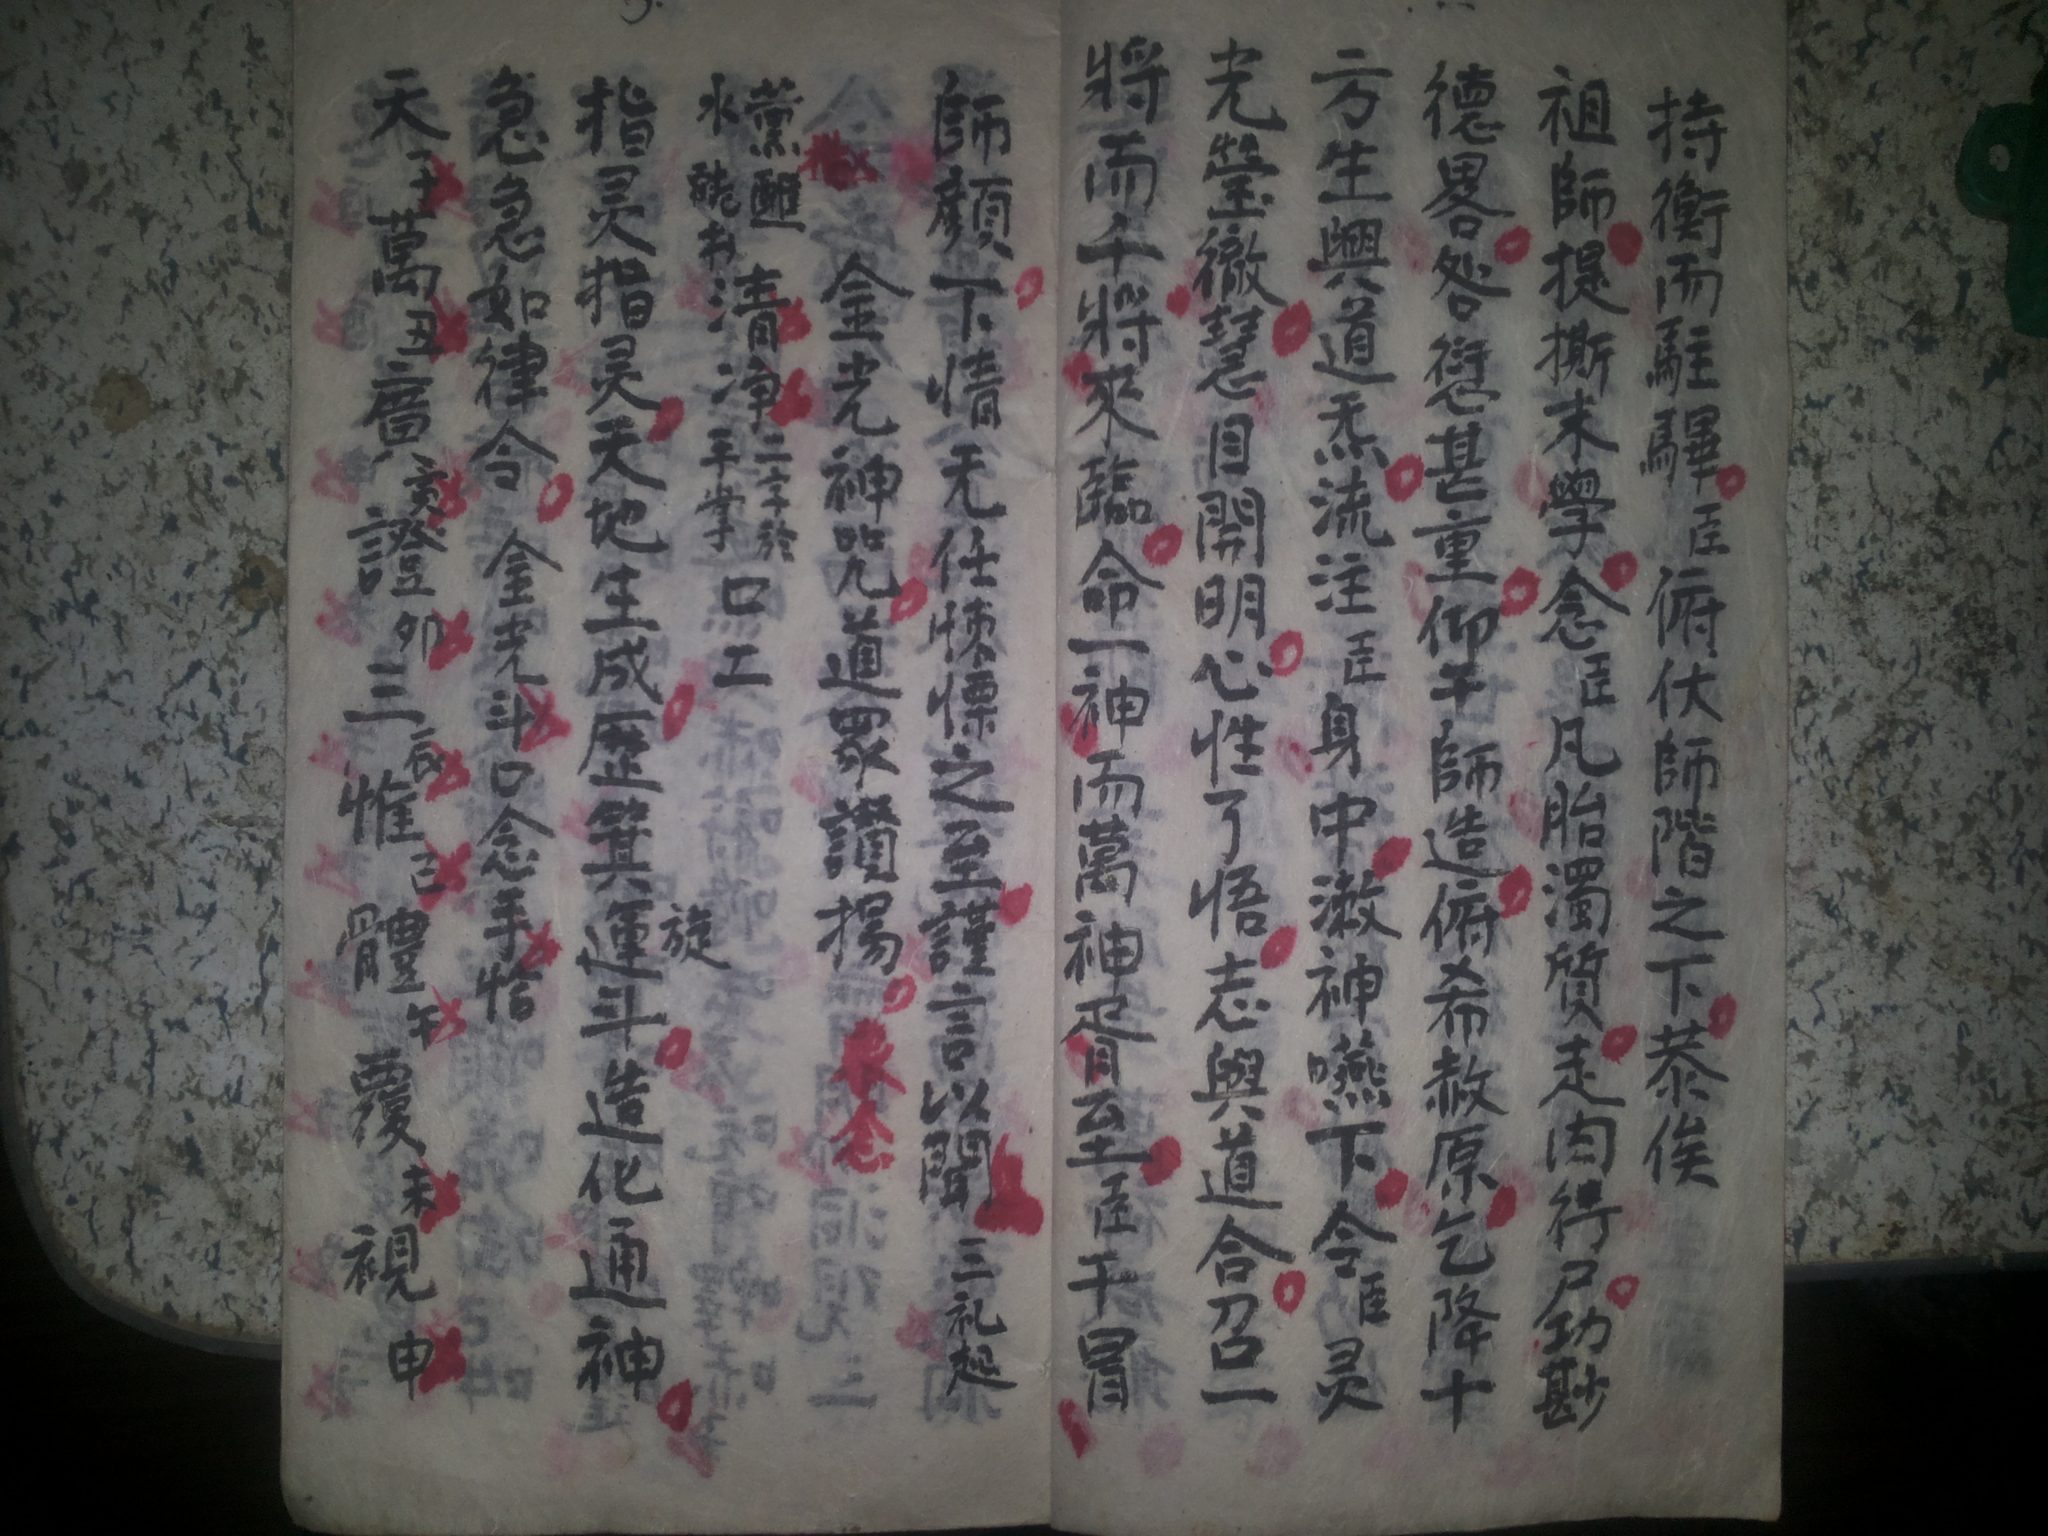 持衡而駐驛臣俯伏師階之下恭俟
祖師提撕末學念臣凡胎濁質走肉行尸功尠
德畧咎愆甚重仰干師造俯希赦原乞降十
方生興道炁流注臣身中潄神嚥下令臣灵
光瑩徹慧目開明心性了悟志與道合召一
將而千將來臨命一神而萬神疋胥至臣干冒
師顏下情无任悚慄之至謹言以聞 三礼起
金光神咒道眾讚揚 眾念
薰
水 清净二字於平掌 口工
指灵指灵天地生成歷箕旋運斗造化通神
急急如律令 金光斗口念手恰
天子萬丑廣寅證卯三辰惟己體午覆未視申